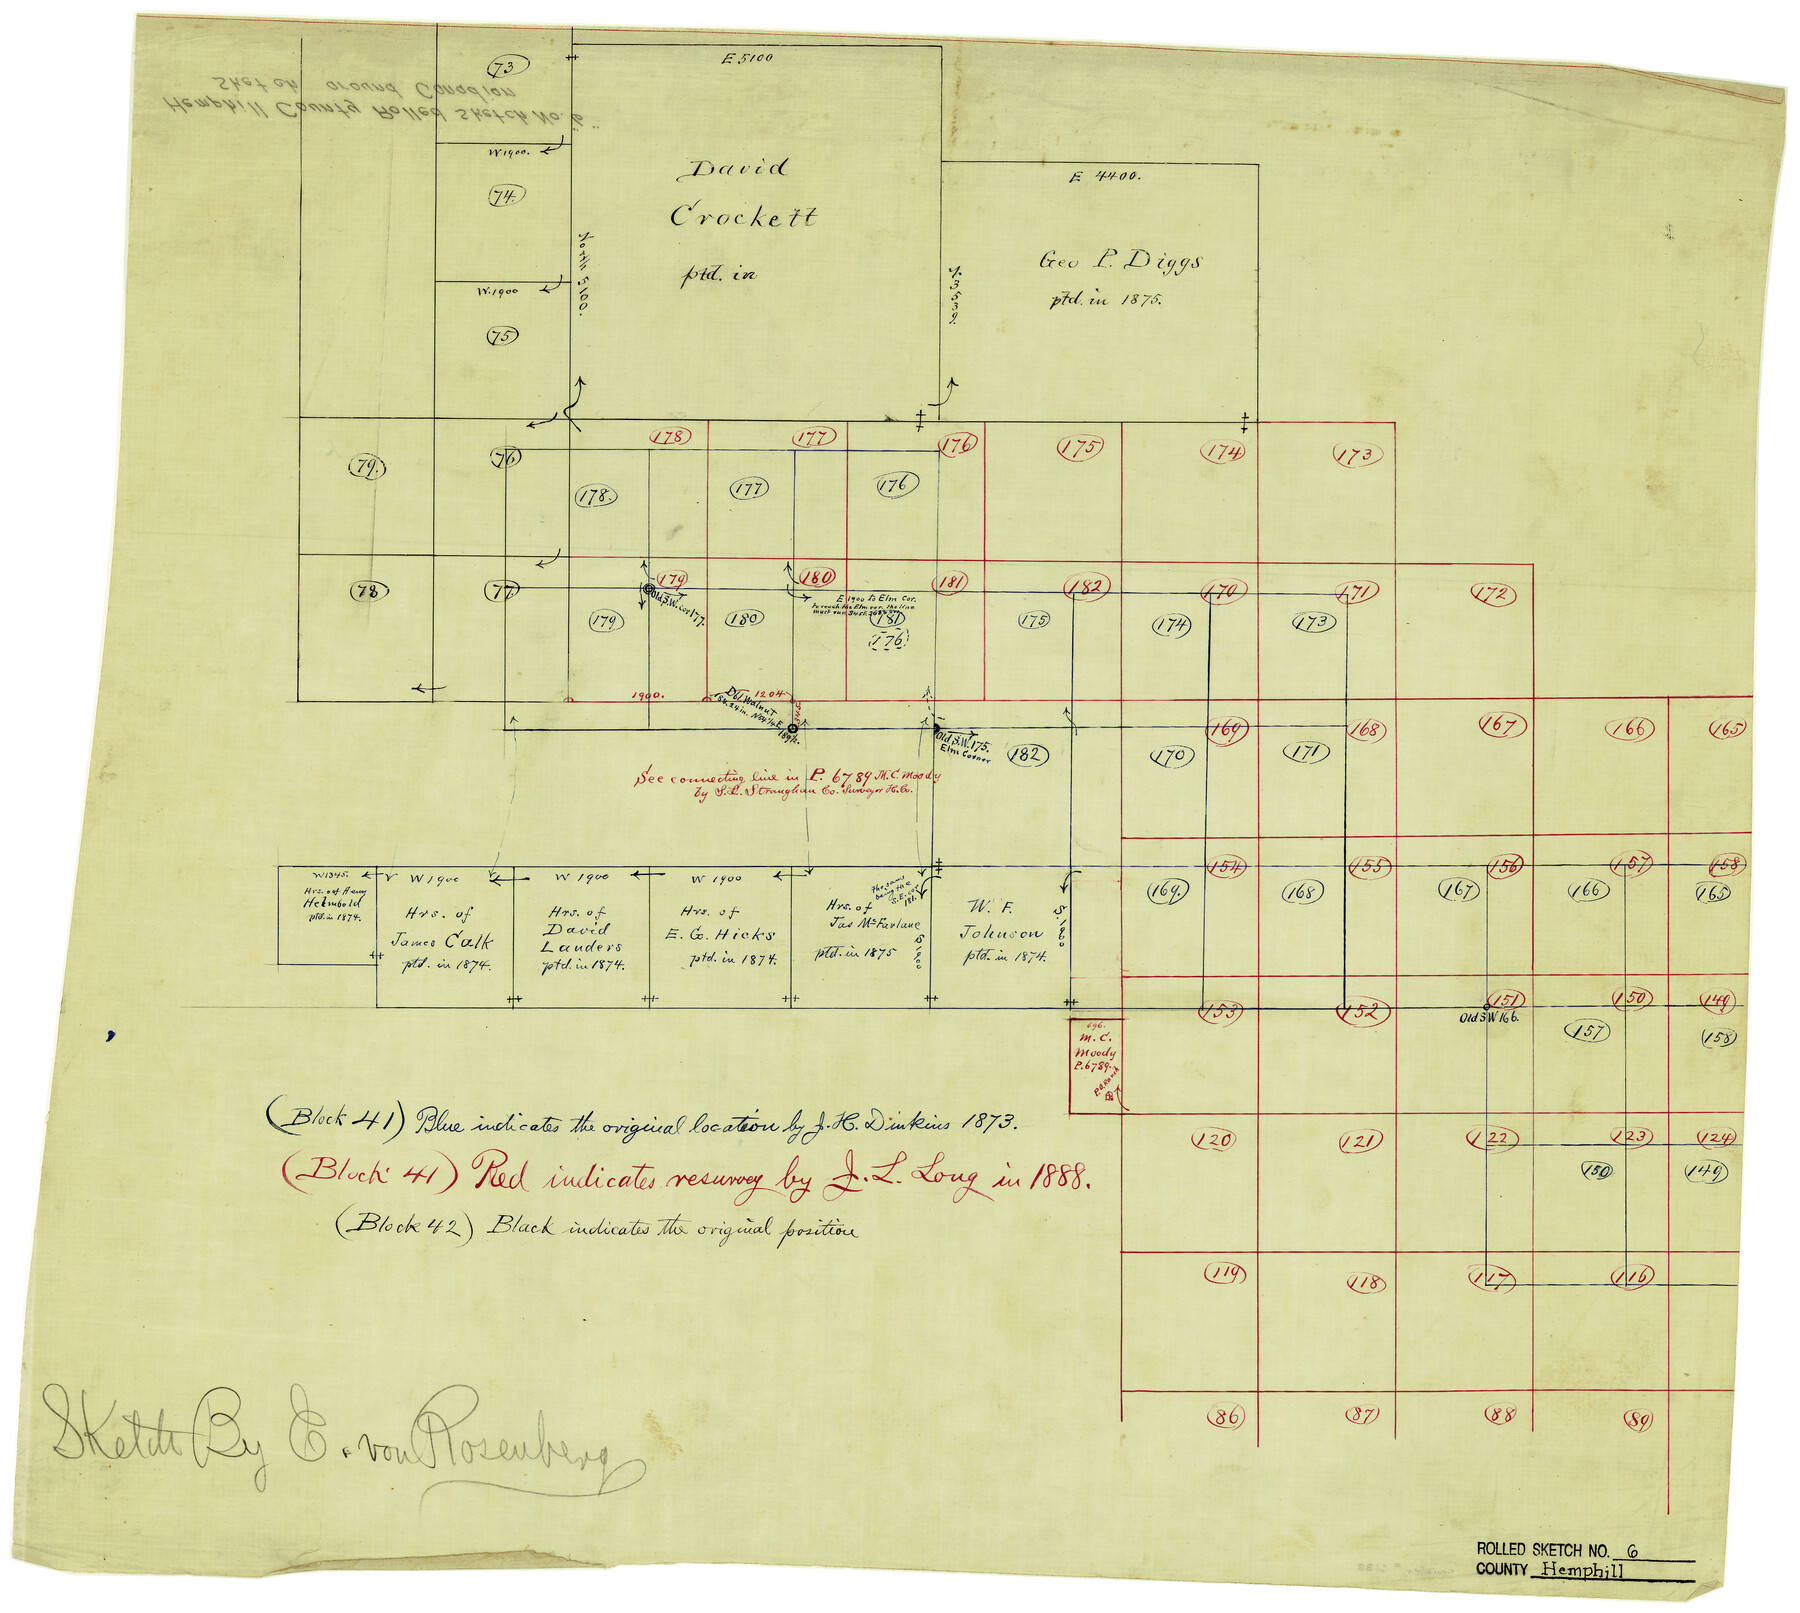 Hemphill County Rolled Sketch No. "6"
Sketch around Canadian
73
W 1900.
74.
W. 1900
75
E 5100
David
Crockett
ptd. in
North 5100.
E 4400.
Geo P. Diggs
ptd. in 1875.
N. 3539.
79.
76
178
177
176
175
174
173
178.
177
176
78
77
179
180
181
182
170
171
172
Old S.W. cor 177.
E 1900 to Elm Cor.
To reach the Elm cor. the line
179
180
181
176
175
174
173
1900.
1204
Dbl Walnut
Old S.W. 175.
Elm Corner
182
170
171
169
168
167
166
165
See connecting line in P. 6789 M.C. Moody
by S.L. Straughan Co. Surveyor H.Co.
W 1345.
Hrs. of Henry
Helmbold
ptd. in 1874.
W 1900
Hrs. of
James Calk
ptd. in 1874.
W 1900
Hrs. of
David
Landers
ptd. in 1874.
W 1900
Hrs. of
E. G. Hicks
ptd. in 1874.
the same
being the
S.E. cor
181.
Hrs. of
Jas McFarlane
ptd. in 1875
S 1900
W. F.
Johnson
ptd. in 1874.
S. 1900
154
155
156
157
158
169.
168
167
166
165
153
152
151
150
149
Old S W 166.
157
158
696.
M. C.
Moody
P. 6789.
P.O. Ranch
(Block 41) Blue indicates the original location by J. H. Dinkins 1873.
(Block 41) Red indicates resurvey by J. L. Long in 1888.
(Block 42) Black indicates the original position
120
121
122
123
124
150
149
119
118
117
116
86
87
88
89
Sketch By E. von Rosenberg
ROLLED SKETCH NO. 6
COUNTY Hemphill